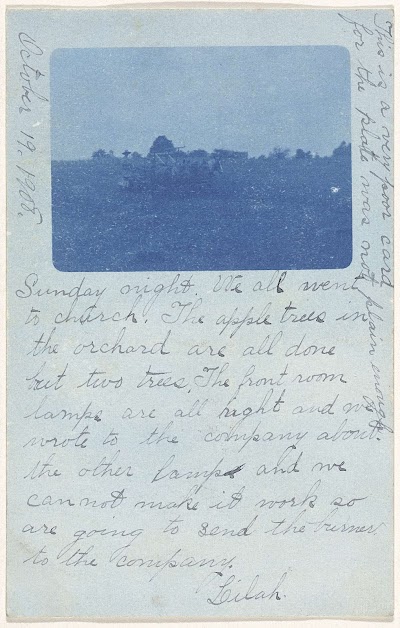 October 19. 1908.
This is a very poor card
for the plate was not plain enough.
Sunday night. We all went
to church. The apple trees in
the orchard are all done
but two trees. The front room
lamps are all right and we
wrote to the company about
the other lamps and we
can not make it work so
are going to send the burner
to the company.
Lilah.